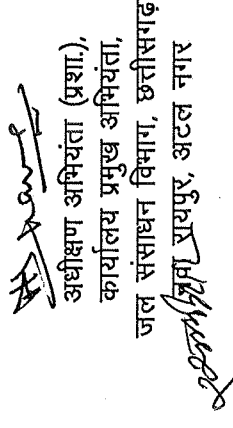 अधीक्षण अभियंता (प्रशा.),
कार्यालय प्रमुख अभियंता,
जल संसाधन विभाग, छत्तीसगढ़
रायपुर, अटल नगर